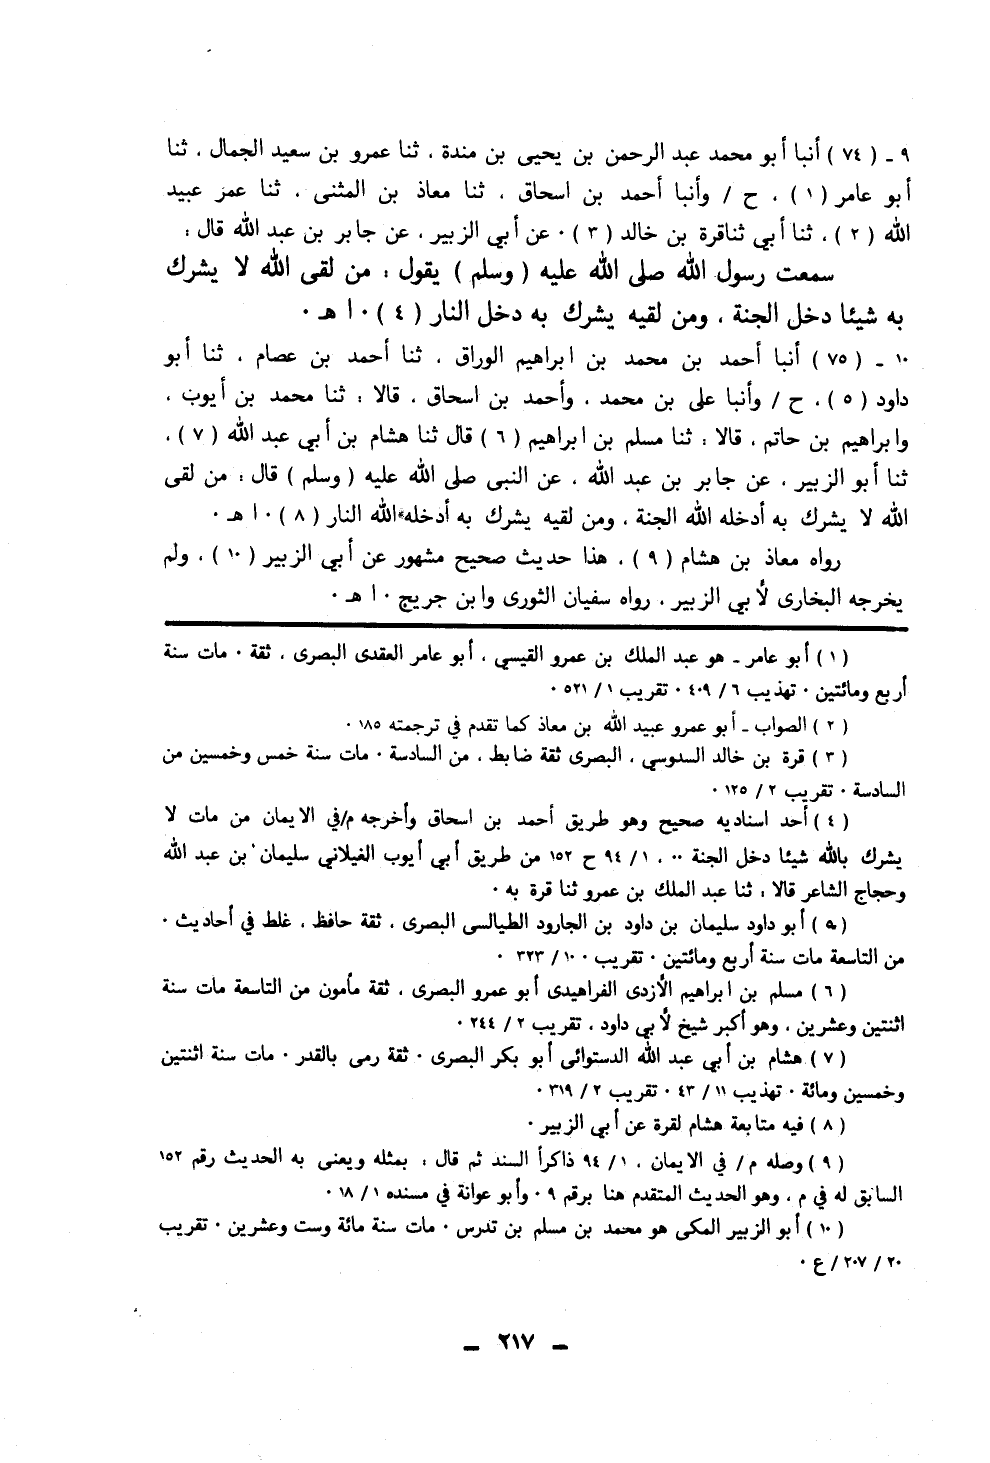 ٩ ـ ( ٧٤ ) أنبا أبو محمد عبد الرحمن بن يحيى بن مندة ، ثنا عمرو بن سعيد الجمال ، ثنا
أبو عامر ( ١ ) ، ح / وأنبا أحمد بن اسحاق ، ثنا معاذ بن المثنى ، ثنا عمر عبيد
الله ( ٢ ) ، ثنا أبي ثناقرة بن خالد ( ٣ ) ٠ عن أبي الزبير ، عن جابر بن عبد الله قال :
سمعت رسول الله صلى الله عليه ( وسلم ) يقول : من لقى الله لا يشرك
به شيئا دخل الجنة ، ومن لقيه يشرك به دخل النار ( ٤ ) ٠ ا هـ ٠
١٠ ـ ( ٧٥ ) أنبا أحمد بن محمد بن ابراهيم الوراق ، ثنا أحمد بن عصام ، ثنا أبو
داود ( ٥ ) ، ح / وأنبا على بن محمد ، وأحمد بن اسحاق ، قالا : ثنا محمد بن أيوب ،
وابراهيم بن حاتم ، قالا : ثنا مسلم بن ابراهيم ( ٦ ) قال ثنا هشام بن أبي عبد الله ( ٧ ) ،
ثنا أبو الزبير ، عن جابر بن عبد الله ، عن النبى صلى الله عليه ( وسلم ) قال : من لقى
الله لا يشرك به أدخله الله الجنة ، ومن لقيه يشرك به أدخله الله النار ( ٨ ) ٠ ا هـ ٠
رواه معاذ بن هشام ( ٩ ) ، هذا حديث صحيح مشهور عن أبي الزبير ( ١٠ ) ، ولم
يخرجه البخارى لأبي الزبير ، رواه سفيان الثورى وابن جريج ٠ ا هـ ٠
( ١ ) أبو عامر ـ هو عبد الملك بن عمرو القيسي ، أبو عامر العقدى البصرى ، ثقة ٠ مات سنة
أربع ومائتين ٠ تهذيب ٦ / ٤٠٩ ٠ تقريب ١ / ٥٢١ ٠
( ٢ ) الصواب ـ أبو عمرو عبيد الله بن معاذ كما تقدم في ترجمته ١٨٥ ٠
( ٣ ) قرة بن خالد السدوسي ، البصرى ثقة ضابط ، من السادسة ٠ مات سنة خمس وخمسين من
السادسة ٠ تقريب ٢ / ١٢٥ ٠
( ٤ ) أحد اسناديه صحيح وهو طريق أحمد بن اسحاق وأخرجه م/في الايمان من مات لا
يشرك بالله شيئا دخل الجنة ٠٠ ، ١ / ٩٤ ح ١٥٢ من طريق أبي أيوب الغيلاني سليمان بن عبد الله
وحجاج الشاعر قالا : ثنا عبد الملك بن عمرو ثنا قرة به ٠
( ٥ ) أبو داود سليمان بن داود بن الجارود الطيالسى البصرى ، ثقة حافظ ، غلط في أحاديث ٠
من التاسعة مات سنة أربع ومائتين ٠ تقريب ٠ ١٠ / ٣٢٣ ٠
( ٦ ) مسلم بن ابراهيم الأزدى الفراهيدى أبو عمرو البصرى ، ثقة مأمون من التاسعة مات سنة
اثنتين وعشرين ، وهو أكبر شيخ لأبي داود ، تقريب ٢ / ٢٤٤ ٠
( ٧ ) هشام بن أبي عبد الله الدستوائى أبو بكر البصرى ٠ ثقة رمى بالقدر ٠ مات سنة اثنتين
وخمسين ومائة ٠ تهذيب ١١ / ٤٣ ٠ تقريب ٢ / ٣١٩ ٠
( ٨ ) فيه متابعة هشام لقرة عن أبي الزبير ٠
( ٩ ) وصله م/ في الايمان ، ١ / ٩٤ ذاكرأ السند ثم قال : بمثله ويعنى به الحديث رقم ١٥٢
السابق له في م ، وهو الحديث المتقدم هنا برقم ٩ ٠ وأبو عوانة في مسنده ١ / ١٨ ٠
( ١٠ ) أبو الزبير المكى هو محمد بن مسلم بن تدرس ٠ مات سنة مائة وست وعشرين ٠ تقريب
٢٠ / ٢٠٧ / ع ٠
ـ ٢١٧ ـ